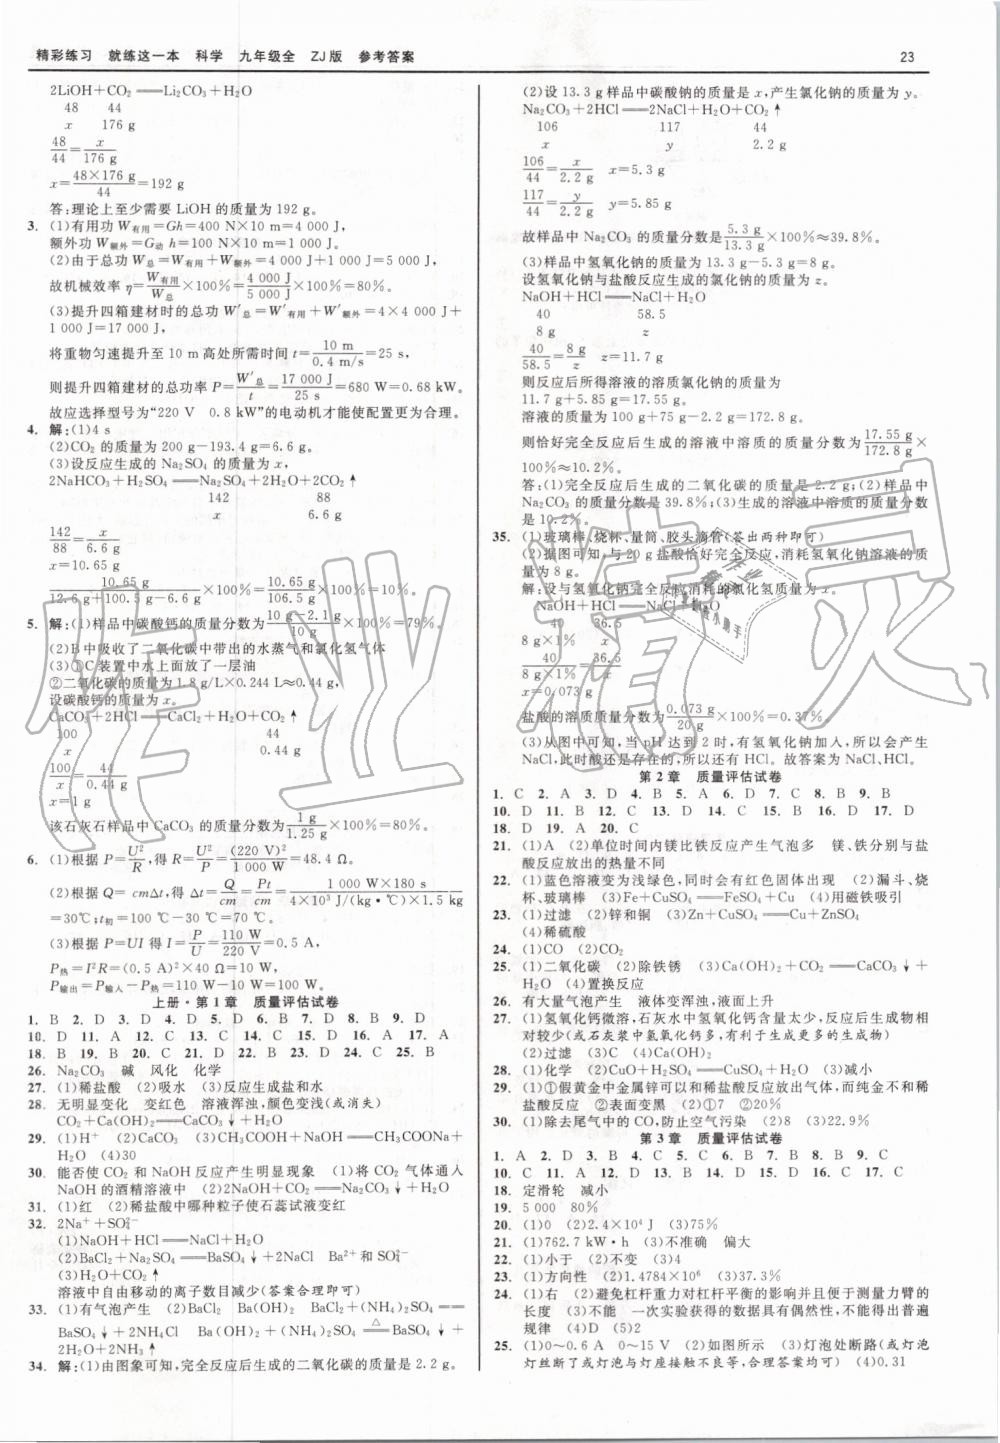 精彩练习 就练这一本 科学 九年级全 ZJ版 参考答案
23
2LiOH+CO₂══Li₂CO₃+H₂O
48 44
x 176 g
48/44=x/176 g
x=48×176 g/44=192 g
答:理论上至少需要 LiOH 的质量为 192 g。
3. (1)有用功 W有用=Gh=400 N×10 m=4 000 J,
额外功 W额外=G动 h=100 N×10 m=1 000 J
(2)由于总功 W总=W有用+W额外=4 000 J+1 000 J=5 000 J,
故机械效率 η=W有用/W总×100%=4 000 J/5 000 J×100%=80%。
(3)提升四箱建材时的总功 W′总=W′有用+W′额外=4×4 000 J+
1 000 J=17 000 J,
将重物匀速提升至 10 m 高处所需时间 t=10 m/0.4 m/s=25 s,
则提升四箱建材的总功率 P=W′总/t=17 000 J/25 s=680 W=0.68 kW。
故应选择型号为“220 V 0.8 kW”的电动机才能使配置更为合理。
4. 解:(1)4 s
(2)CO₂ 的质量为 200 g−193.4 g=6.6 g,
(3)设反应生成的 Na₂SO₄ 的质量为 x,
2NaHCO₃+H₂SO₄══Na₂SO₄+2H₂O+2CO₂↑
142 88
x 6.6 g
142/88=x/6.6 g
x=10.65 g
10.65 g/12.6 g+100.5 g−6.6 g×100%=10.65 g/106.5 g×100%=10%
5. 解:(1)样品中碳酸钙的质量分数为10 g−2.1 g/10 g×100%=79%。
(2)B 中吸收了二氧化碳中带出的水蒸气和氯化氢气体
(3)①C 装置中水上面放了一层油
②二氧化碳的质量为 1.8 g/L×0.244 L≈0.44 g,
设碳酸钙的质量为 x。
CaCO₃+2HCl══CaCl₂+H₂O+CO₂↑
100 44
x 0.44 g
100/x=44/0.44 g
x=1 g
该石灰石样品中 CaCO₃ 的质量分数为1 g/1.25 g×100%=80%。
6. (1)根据 P=U²/R,得 R=U²/P=(220 V)²/1 000 W=48.4 Ω。
(2)根据 Q=cmΔt,得 Δt=Q/cm=Pt/cm=1 000 W×180 s/4×10³ J/(kg·℃)×1.5 kg
=30℃;t初=100 ℃−30 ℃=70 ℃。
(3)根据 P=UI 得 I=P/U=110 W/220 V=0.5 A,
P热=I²R=(0.5 A)²×40 Ω=10 W,
P输出=P输入−P热=110 W−10 W=100 W。
上册·第1章 质量评估试卷
1. B 2. D 3. D 4. D 5. D 6. B 7. D 8. B 9. D
10. D 11. A 12. D 13. C 14. C 15. C 16. A 17. A
18. B 19. B 20. C 21. A 22. B 23. D 24. C 25. B
26. Na₂CO₃ 碱 风化 化学
27. (1)稀盐酸 (2)吸水 (3)反应生成盐和水
28. 无明显变化 变红色 溶液浑浊,颜色变浅(或消失)
CO₂+Ca(OH)₂══CaCO₃↓+H₂O
29. (1)H⁺ (2)CaCO₃ (3)CH₃COOH+NaOH══CH₃COONa+
H₂O
30. 能否使 CO₂ 和 NaOH 反应产生明显现象 (1)将 CO₂ 气体通入
NaOH 的酒精溶液中 (2)2NaOH+CO₂══Na₂CO₃↓+H₂O
31. (1)红 (2)稀盐酸中哪种粒子使石蕊试液变红
32. 2Na⁺+SO₄²⁻
(1)NaOH+HCl══NaCl+H₂O
(2)BaCl₂+Na₂SO₄══BaSO₄↓+2NaCl Ba²⁺和 SO₄²⁻
(3)H₂O+CO₂↑
溶液中自由移动的离子数目减少(答案合理即可)
33. (1)有气泡产生 (2)BaCl₂ Ba(OH)₂ BaCl₂+(NH₄)₂SO₄══
BaSO₄↓+2NH₄Cl Ba(OH)₂+(NH₄)₂SO₄ ══△
BaSO₄↓+2H₂O+2NH₃↑
34. 解:(1)由图象可知,完全反应后生成的二氧化碳的质量是 2.2 g。
(2)设 13.3 g 样品中碳酸钠的质量是 x,产生氯化钠的质量为 y。
Na₂CO₃+2HCl══2NaCl+H₂O+CO₂↑
106 117 44
x y 2.2 g
106/44=x/2.2 g x=5.3 g
117/44=y/2.2 g y=5.85 g
故样品中 Na₂CO₃ 的质量分数是5.3 g/13.3 g×100%≈39.8%。
(3)样品中氢氧化钠的质量是 13.3 g−5.3 g=8 g。
设氢氧化钠与盐酸反应生成的氯化钠的质量是 z。
NaOH+HCl══NaCl+H₂O
40 58.5
8 g z
40/58.5=8 g/z z=11.7 g
则反应后所得溶液的溶质氯化钠的质量为
11.7 g+5.85 g=17.55 g。
溶液的质量为 100 g+75 g−2.2 g=172.8 g。
则恰好完全反应后生成的溶液中溶质的质量分数为17.55 g/172.8 g×
100%≈10.2%。
答:(1)完全反应后生成的二氧化碳的质量是 2.2 g;(2)样品中
Na₂CO₃ 的质量分数是 39.8%;(3)生成的溶液中溶质的质量分数
是 10.2%。
35. (1)玻璃棒、烧杯、量筒、胶头滴管(答出两种即可)
(2)据图可知,与 20 g 盐酸恰好完全反应,消耗氢氧化钠溶液的质
量为 8 g。
解:设与氢氧化钠完全反应消耗的氯化氢质量为 x。
NaOH+HCl══NaCl+H₂O
40 36.5
8 g×1% x
40/8 g×1%=36.5/x
x=0.073 g
盐酸的溶质质量分数为0.073 g/20 g×100%≈0.37%。
(3)从图中可知,当 pH 达到 2 时,有氢氧化钠加入,所以会产生
NaCl,此时酸还是存在的,所以还有 HCl。故答案为 NaCl、HCl。
第2章 质量评估试卷
1. C 2. A 3. D 4. B 5. A 6. D 7. C 8. B 9. B
10. D 11. B 12. C 13. D 14. C 15. B 16. D 17. D
18. D 19. A 20. C
21. (1)A (2)单位时间内镁比铁反应产生气泡多 镁、铁分别与盐
酸反应放出的热量不同
22. (1)蓝色溶液变为浅绿色,同时会有红色固体出现 (2)漏斗、烧
杯、玻璃棒 (3)Fe+CuSO₄══FeSO₄+Cu (4)用磁铁吸引
23. (1)过滤 (2)锌和铜 (3)Zn+CuSO₄══Cu+ZnSO₄
(4)稀硫酸
24. (1)CO (2)CO₂
25. (1)二氧化碳 (2)除铁锈 (3)Ca(OH)₂+CO₂══CaCO₃↓+
H₂O (4)置换反应
26. 有大量气泡产生 液体变浑浊,液面上升
27. (1)氢氧化钙微溶,石灰水中氢氧化钙含量太少,反应后生成物相
对较少(或石灰浆中氢氧化钙多,有利于生成更多的生成物)
(2)过滤 (3)C (4)Ca(OH)₂
28. (1)化学 (2)CuO+H₂SO₄══CuSO₄+H₂O (3)减小
29. (1)①假黄金中金属锌可以和稀盐酸反应放出气体,而纯金不和稀
盐酸反应 ②表面变黑 (2)①7 ②20%
30. (1)除去尾气中的 CO,防止空气污染 (2)8 (3)22.9%
第3章 质量评估试卷
1. A 2. D 3. B 4. C 5. C 6. B 7. B 8. C 9. B
10. C 11. A 12. D 13. B 14. D 15. B 16. C 17. C
18. 定滑轮 减小
19. 5 000 80%
20. (1)0 (2)2.4×10⁴ J (3)75%
21. (1)762.7 kW·h (3)不准确 偏大
22. (1)小于 (2)不变 (3)4
23. (1)方向性 (2)1.4784×10⁶ (3)37.3%
24. (1)右 (2)避免杠杆重力对杠杆平衡的影响并且便于测量力臂的
长度 (3)不能 一次实验获得的数据具有偶然性,不能得出普遍
规律 (4)D (5)2
25. (1)0~0.6 A 0~15 V (2)如图所示 (3)灯泡处断路(或灯泡
灯丝断了或灯泡与灯座接触不良等,合理答案均可) (4)0.31
作业精灵